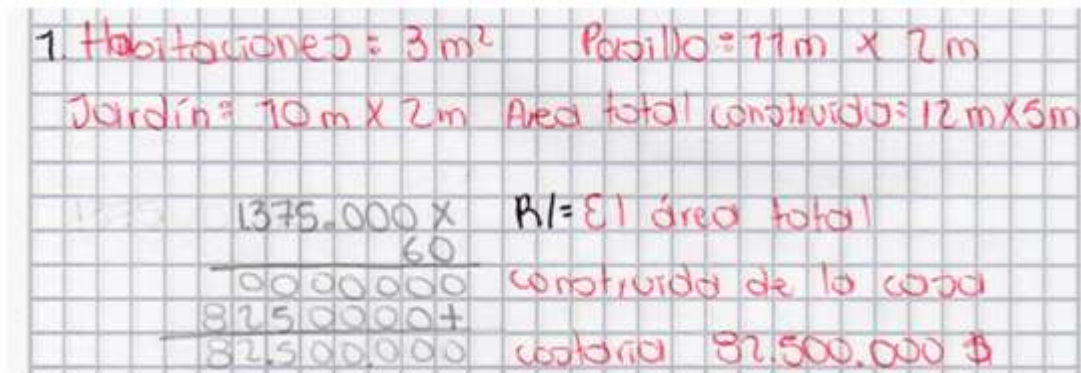 1. Habitaciones = 3 m² Pasillo = 11 m x 2 m
Jardín = 10 m x 2 m Area total construida = 12 m x 5 m
1.375.000 x
60
0000000
8250000+
82.500.000
R/= El área total
construida de la casa
costaría 82.500.000 $